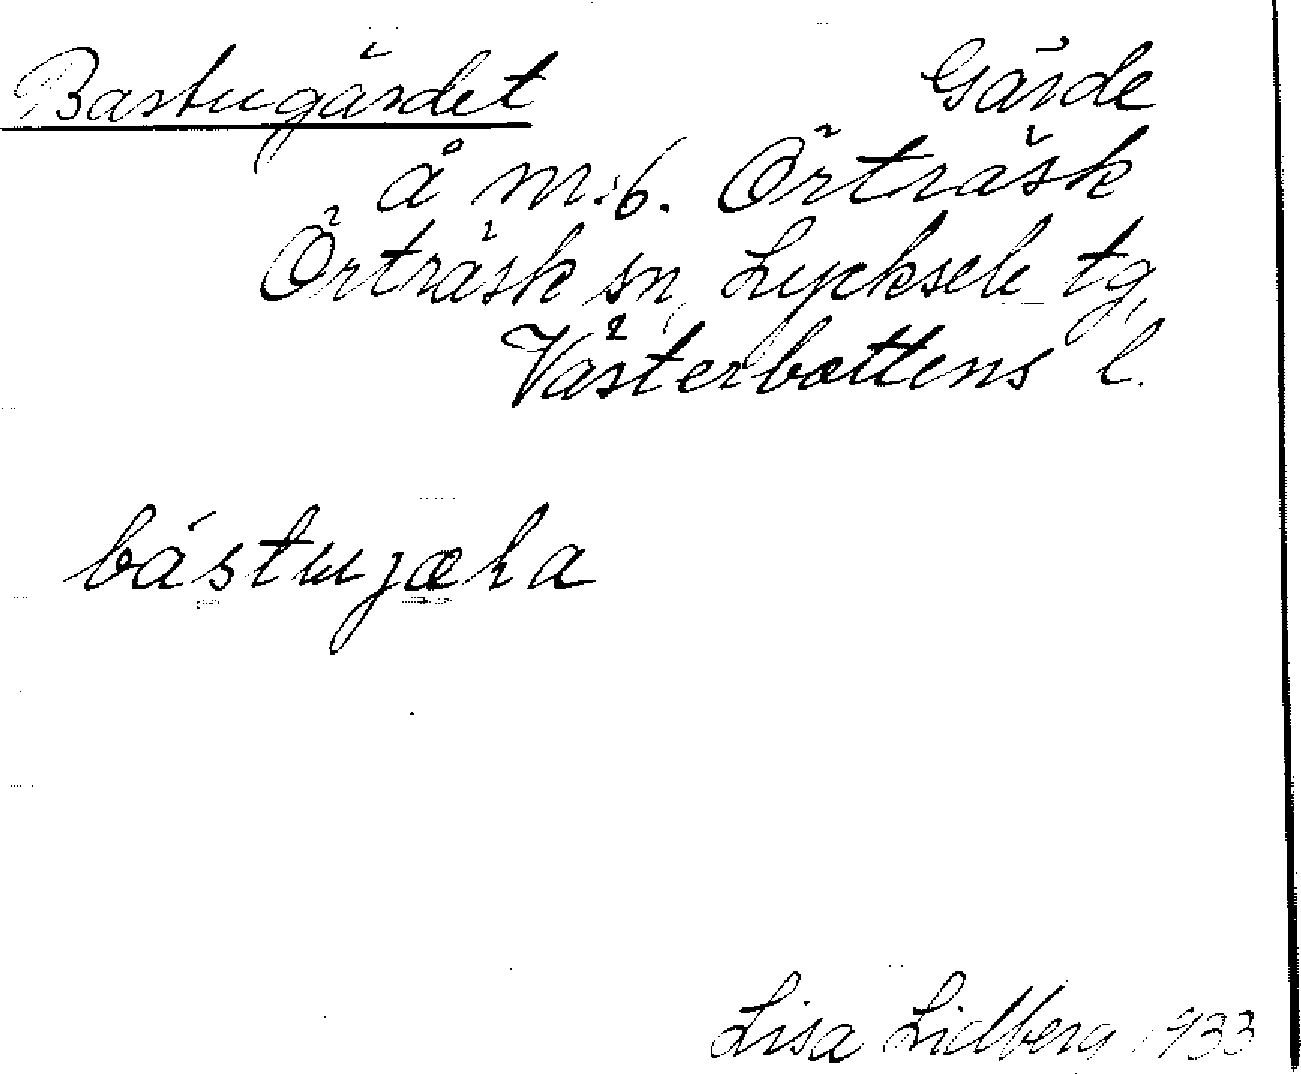 Bastugärdet Gärde
å m:6. Örträsk
Örträsk sn, Lycksele tg,
Västerbottens l.
bástujæla
Lisa Lidberg 1933